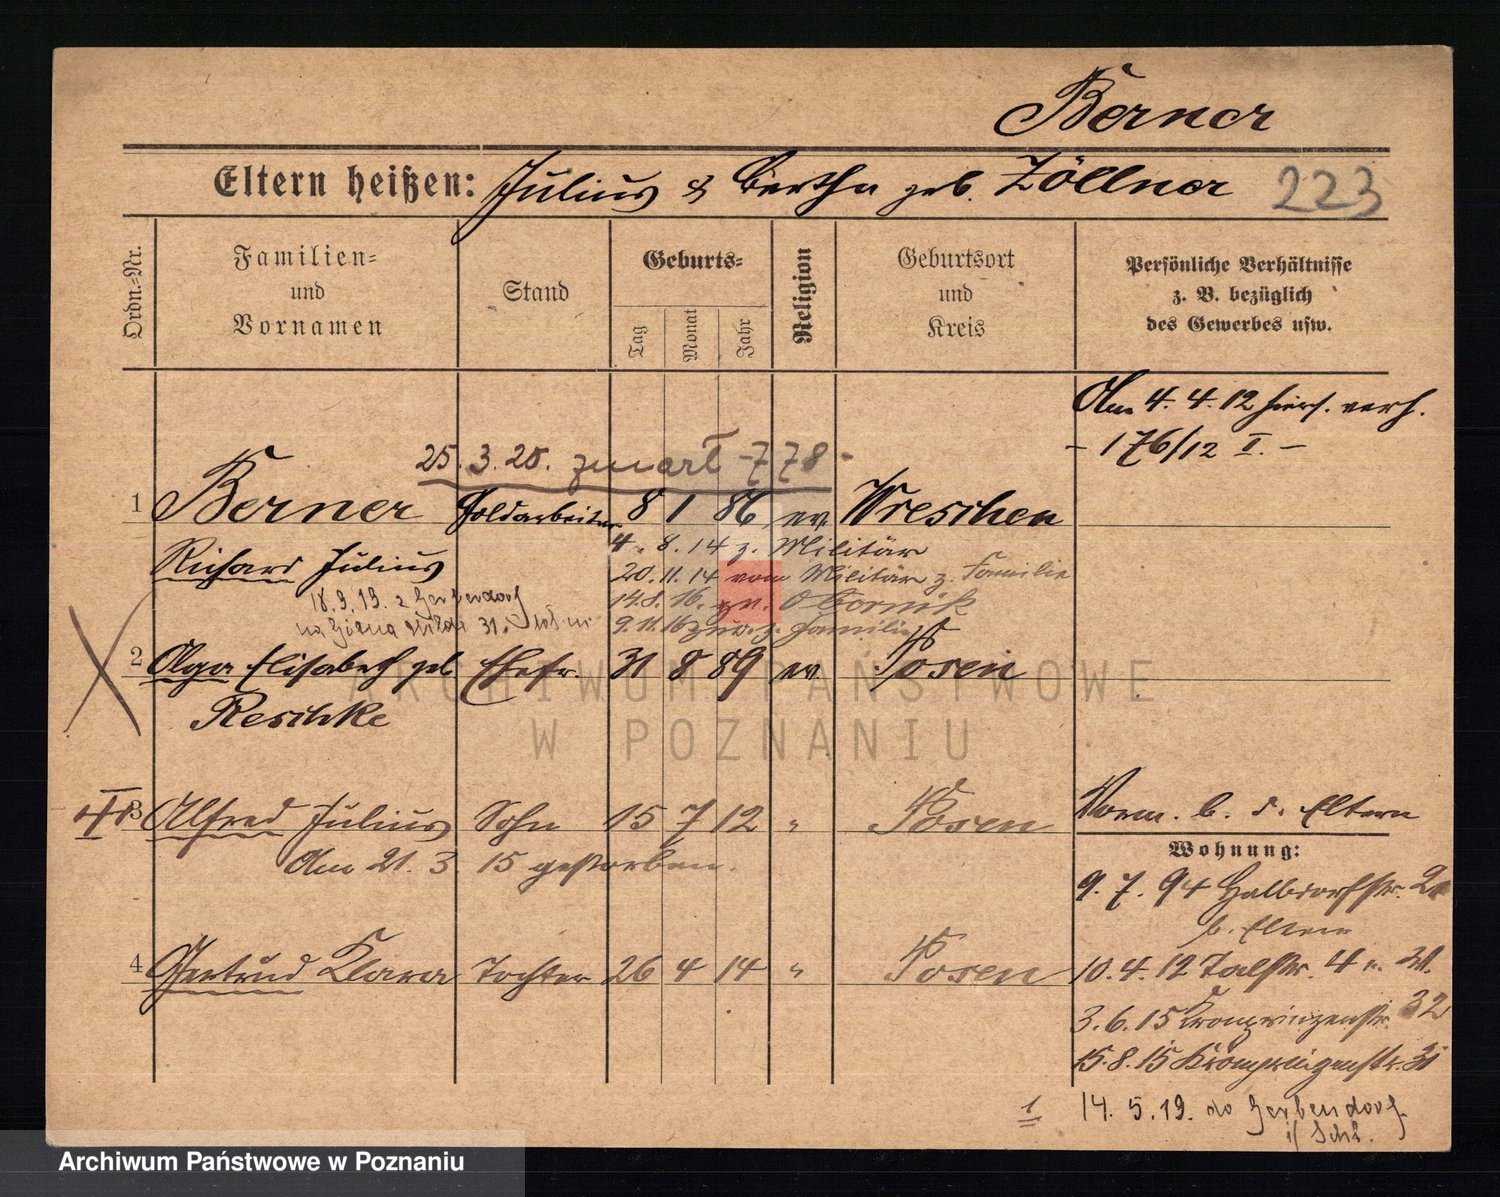 Berner
Eltern heißen: Julius & Bertha geb. Zöllner 223
Ordn.-Nr.
Familien= und Vornamen
Stand
Geburts=
Tag Monat Jahr
Religion
Geburtsort und Kreis
Persönliche Verhältnisse
z. B. bezüglich
des Gewerbes usw.
Am 4. 4. 12 hiers. verh.
- 176/12 I. -
25. 3. 20. 778 -
1 Berner Goldarbeiter 8 1 86 ev Wreschen
Richard Julius
4. 8. 14 z. Militär
20. 11. 14 vom Militär z. Familie
14.8. 16. zu. Obornik
9. 11. 16 zur. z. Familie
18. 9. 19. z Gerbendorf
na 31.
2 Olga Elisabeth geb Ehefr. 31 8 89 ev Posen
Reschke
3 Alfred Julius Sohn 15 7 12 " Posen
Am 21. 3 15 gestorben.
Vorm. b. d. Eltern
Wohnung:
9. 7. 94 Halbdorfstr.
b. Eltern
4 Gertrud Klara Tochter 26 4 14 " Posen
10. 4. 12 Talstr. 4 u.
3. 6. 15 Kronprinzenstr. 32
15. 8. 15 Kronprinzenstr. 31
1 14. 5. 19. do Gerbendorf
i/ Schl.
ARCHIWUM PAŃSTWOWE
W POZNANIU
Archiwum Państwowe w Poznaniu